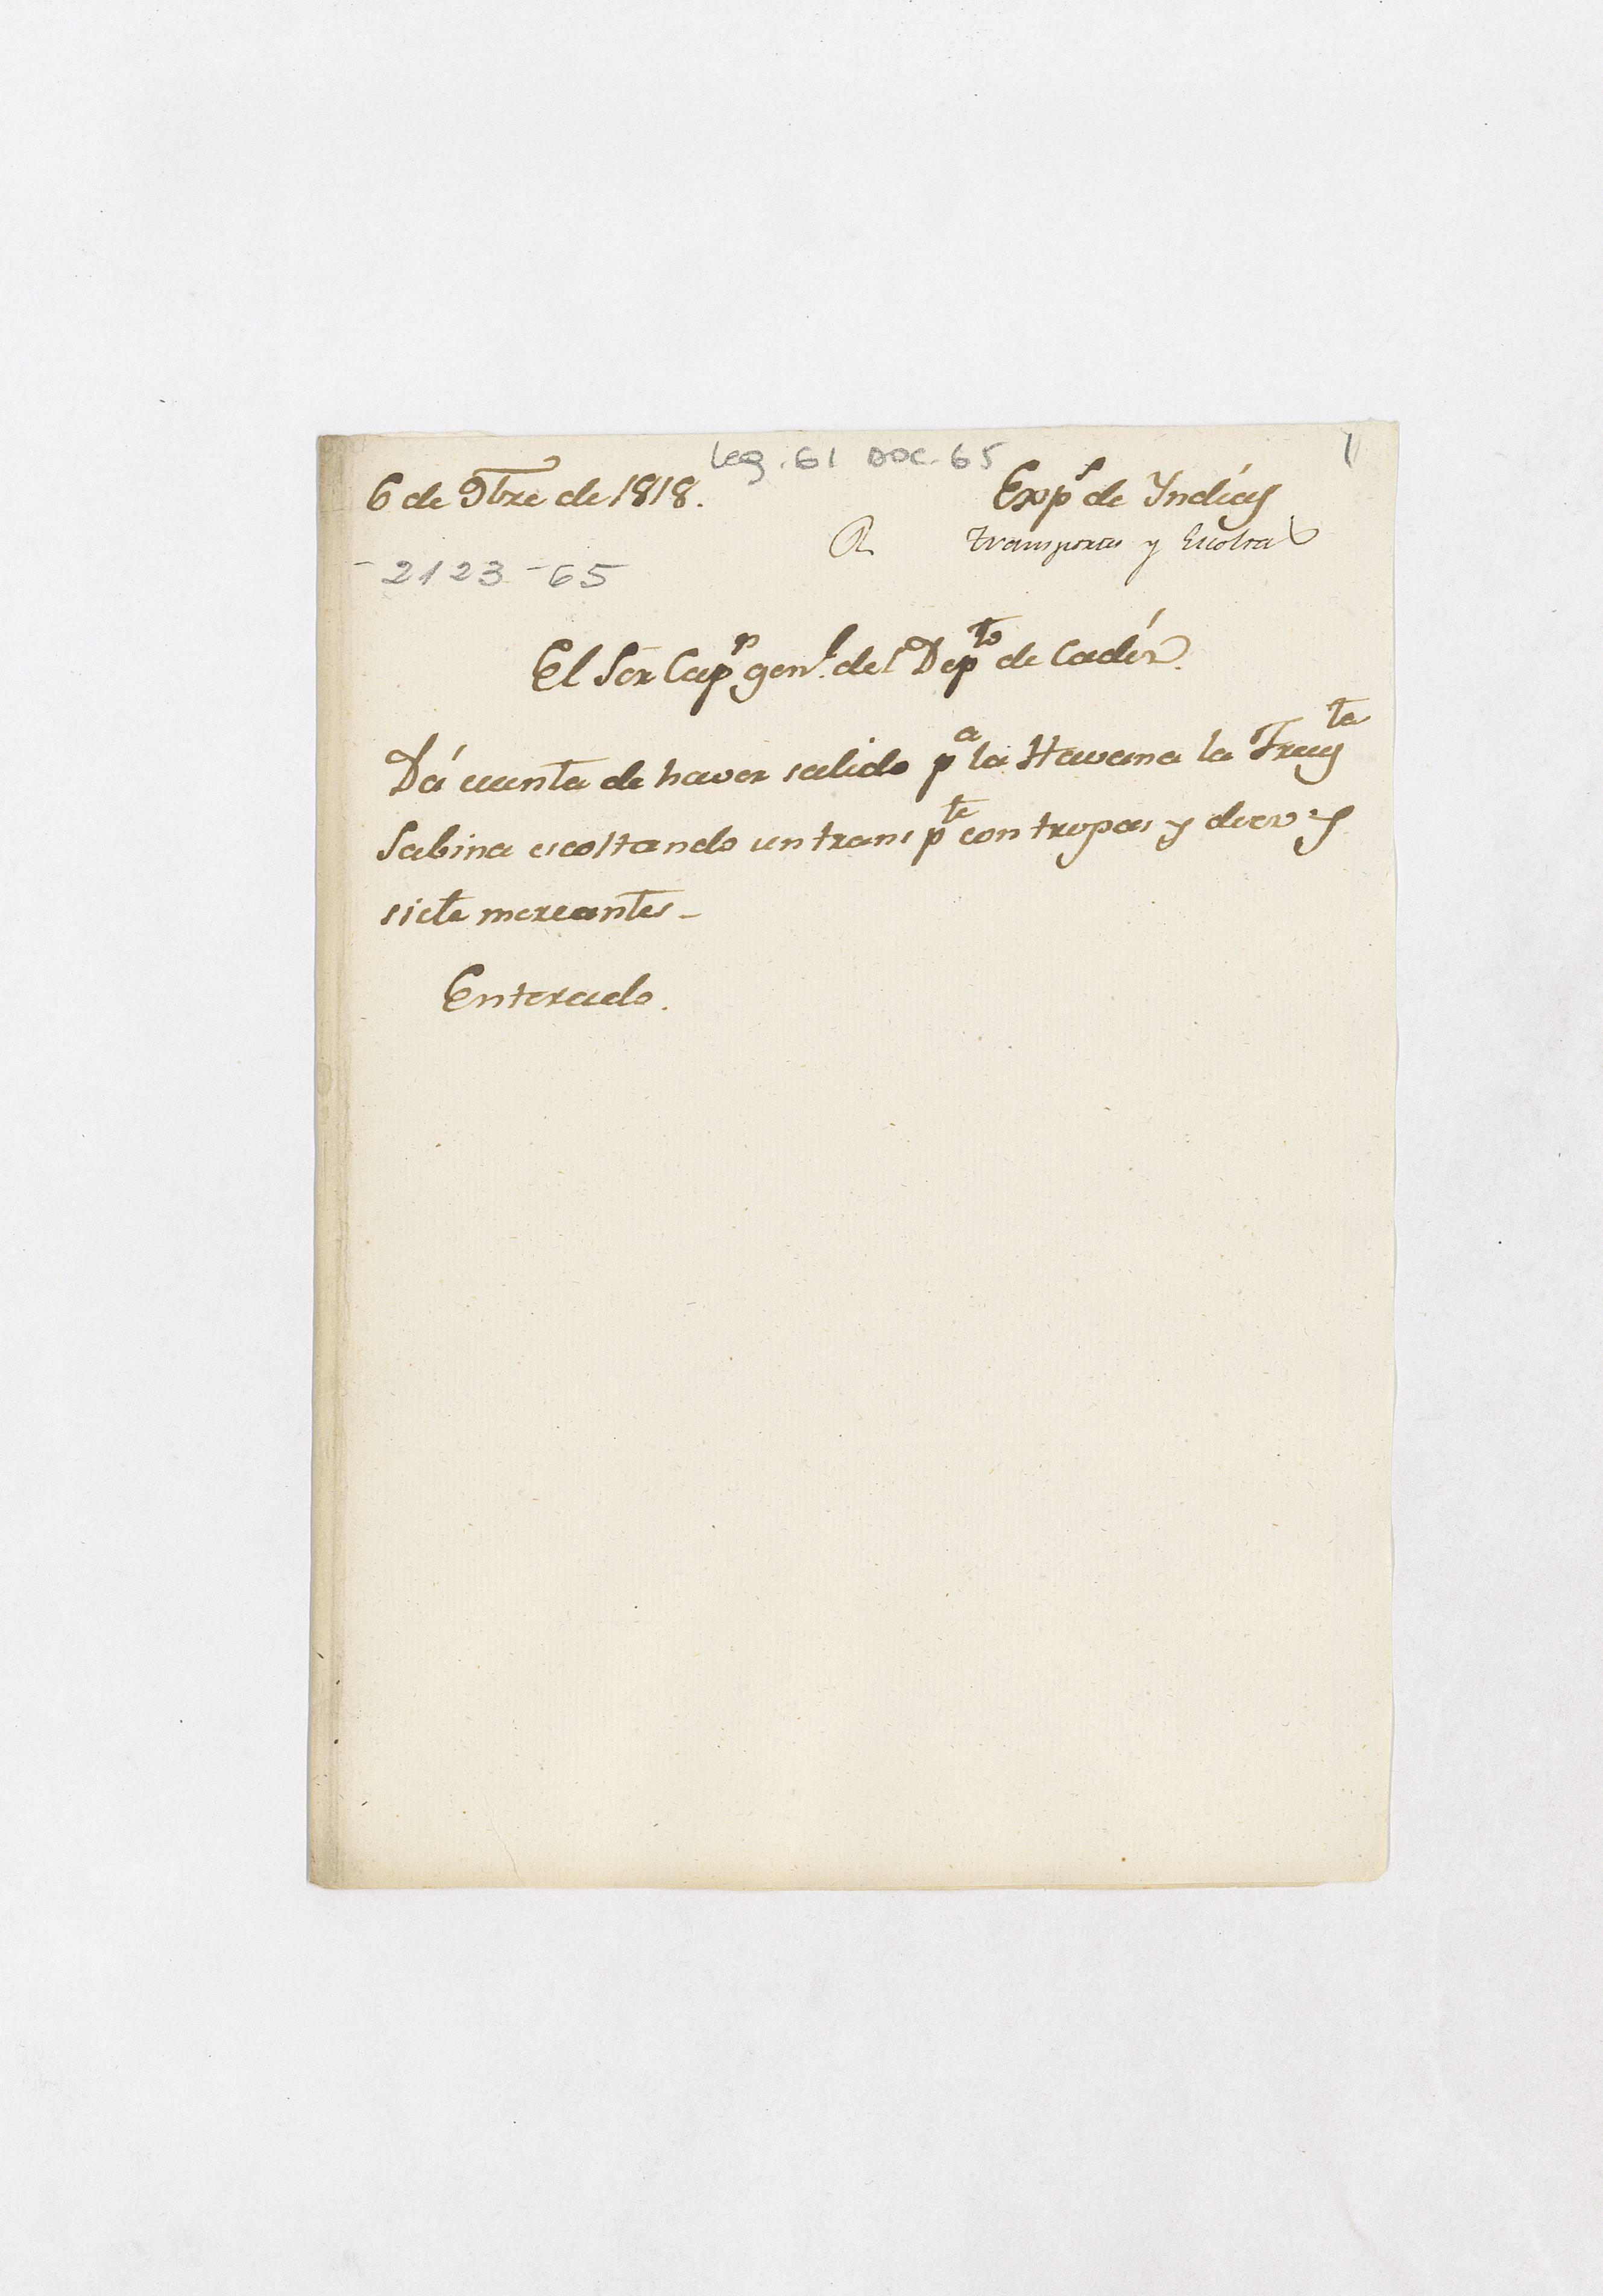 Leg. 61 Doc. 65
1
6 de 9bre de 1818.
Exps de Yndias
R
Transportes y Escoltas
2123 - 65
El Sor Capn genl. del Depto de Cadiz.
Dá cuenta de haver salido pa la Havana la Fragta
Sabina escoltando un transpte con tropas y diez y
siete mercantes -
Enterado.